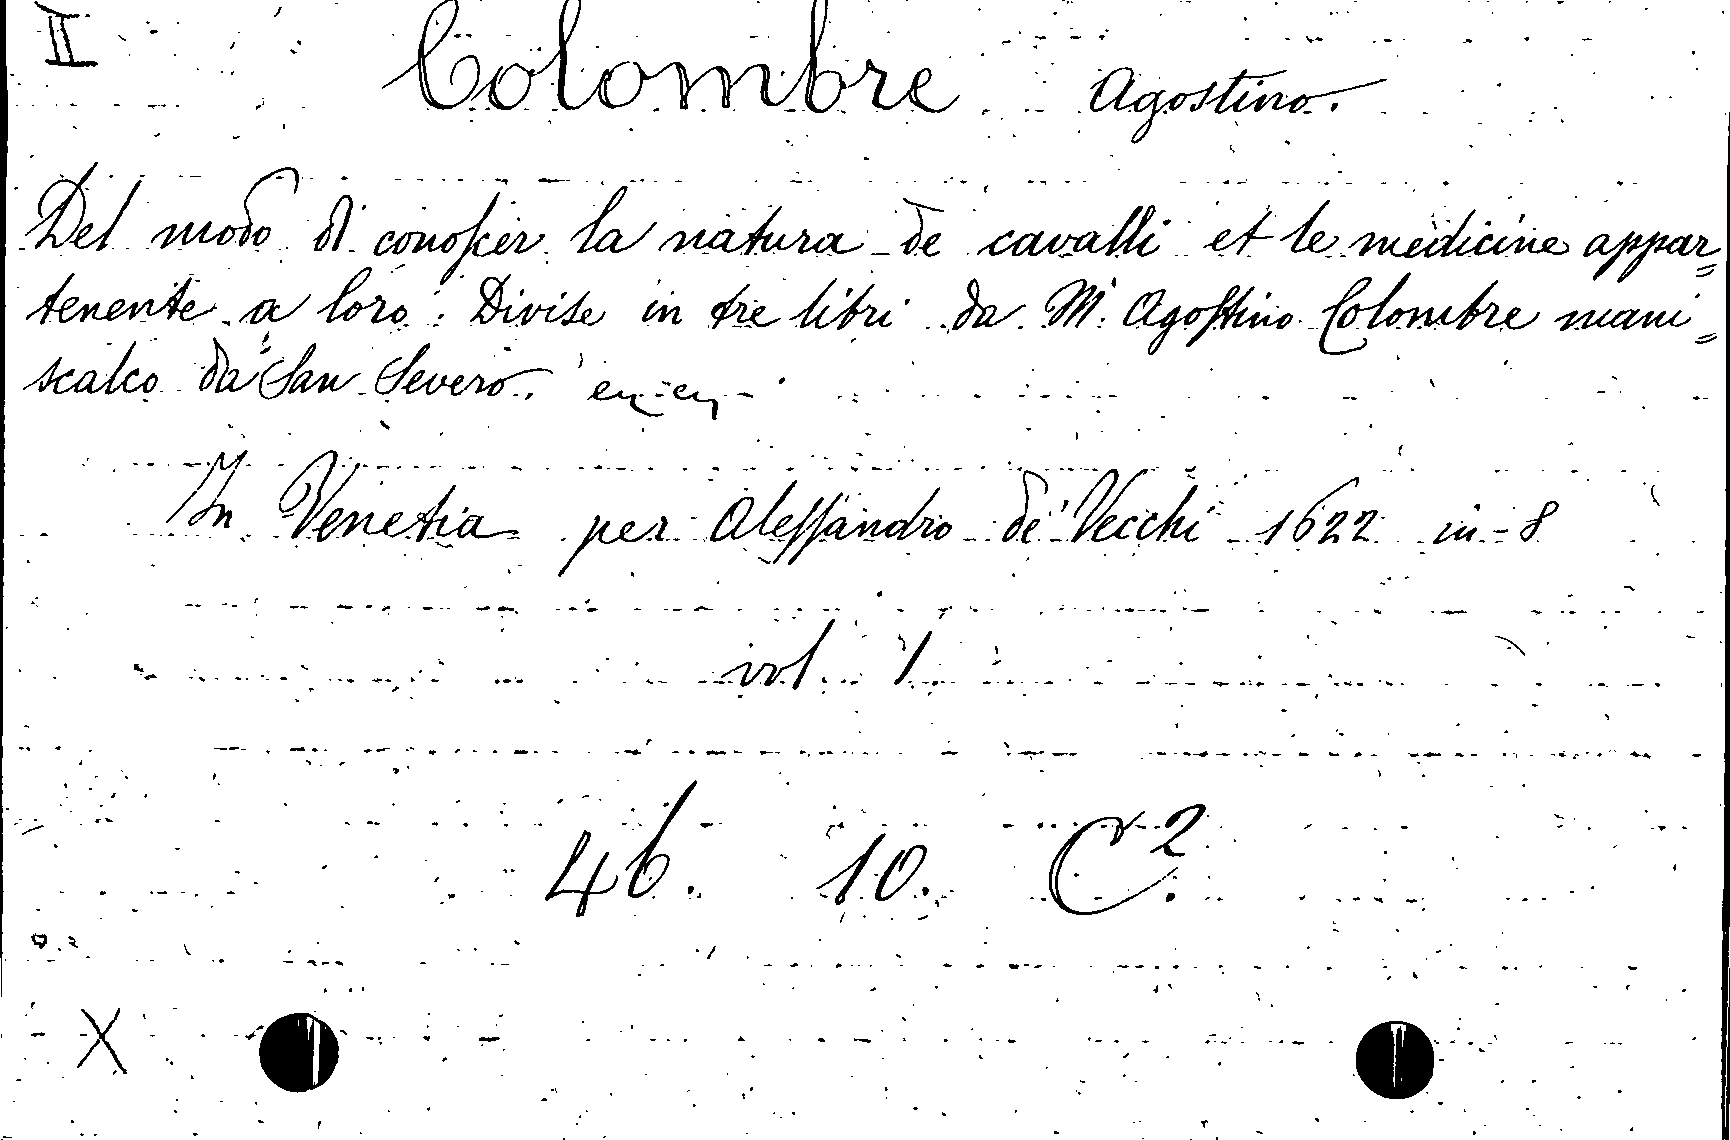 II
Colombre Agostino.
Del modo di conoſcer la natura de cavalli et le medicine appar=
tenente a loro. Divise in tre libri da M. Agoſtino Colombre mani=
scalco da San Severo.
In Venetia per Aleſſandro de' Vecchi 1622 in-8
vol 1
46. 10. C².
X